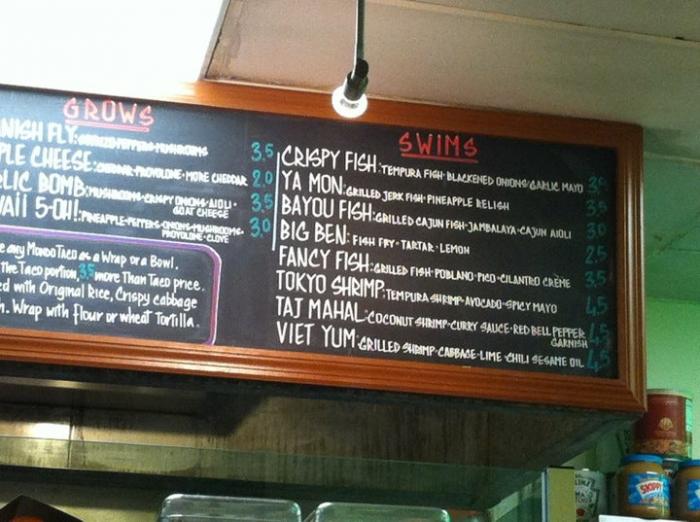 GROWS
NISH FLY: PEPPERS·MUSHROOMS 3.5
PLE CHEESE: CHEDDAR·PROVOLONE·MORE CHEDDAR 2.0
LIC BOMB: MUSHROOMS·CRISPY ONIONS·AIOLI· GOAT CHEESE 3.5
AII 5-OH!: PINEAPPLE·PEPPERS·ONIONS·MUSHROOMS· PROVOLONE·CLOVE 3.0
any Mondo Taco as a Wrap or a Bowl.
the Taco portion, 3.5 more Than Taco price.
ed with Original Rice, Crispy cabbage
h. Wrap with flour or wheat Tortilla.
SWIMS
CRISPY FISH: TEMPURA FISH·BLACKENED ONIONS·GARLIC MAYO
YA MON: GRILLED JERK FISH·PINEAPPLE RELISH 3.5
BAYOU FISH: GRILLED CAJUN FISH·JAMBALAYA·CAJUN AIOLI 3.0
BIG BEN: FISH FRY·TARTAR·LEMON 2.5
FANCY FISH: GRILLED FISH·POBLANO·PICO·CILANTRO CRÈME 3.5
TOKYO SHRIMP: TEMPURA SHRIMP·AVOCADO·SPICY MAYO 4.5
TAJ MAHAL: COCONUT SHRIMP·CURRY SAUCE·RED BELL PEPPER GARNISH 4.5
VIET YUM: GRILLED SHRIMP·CABBAGE·LIME·CHILI SESAME OIL 4.5
SKIPPY